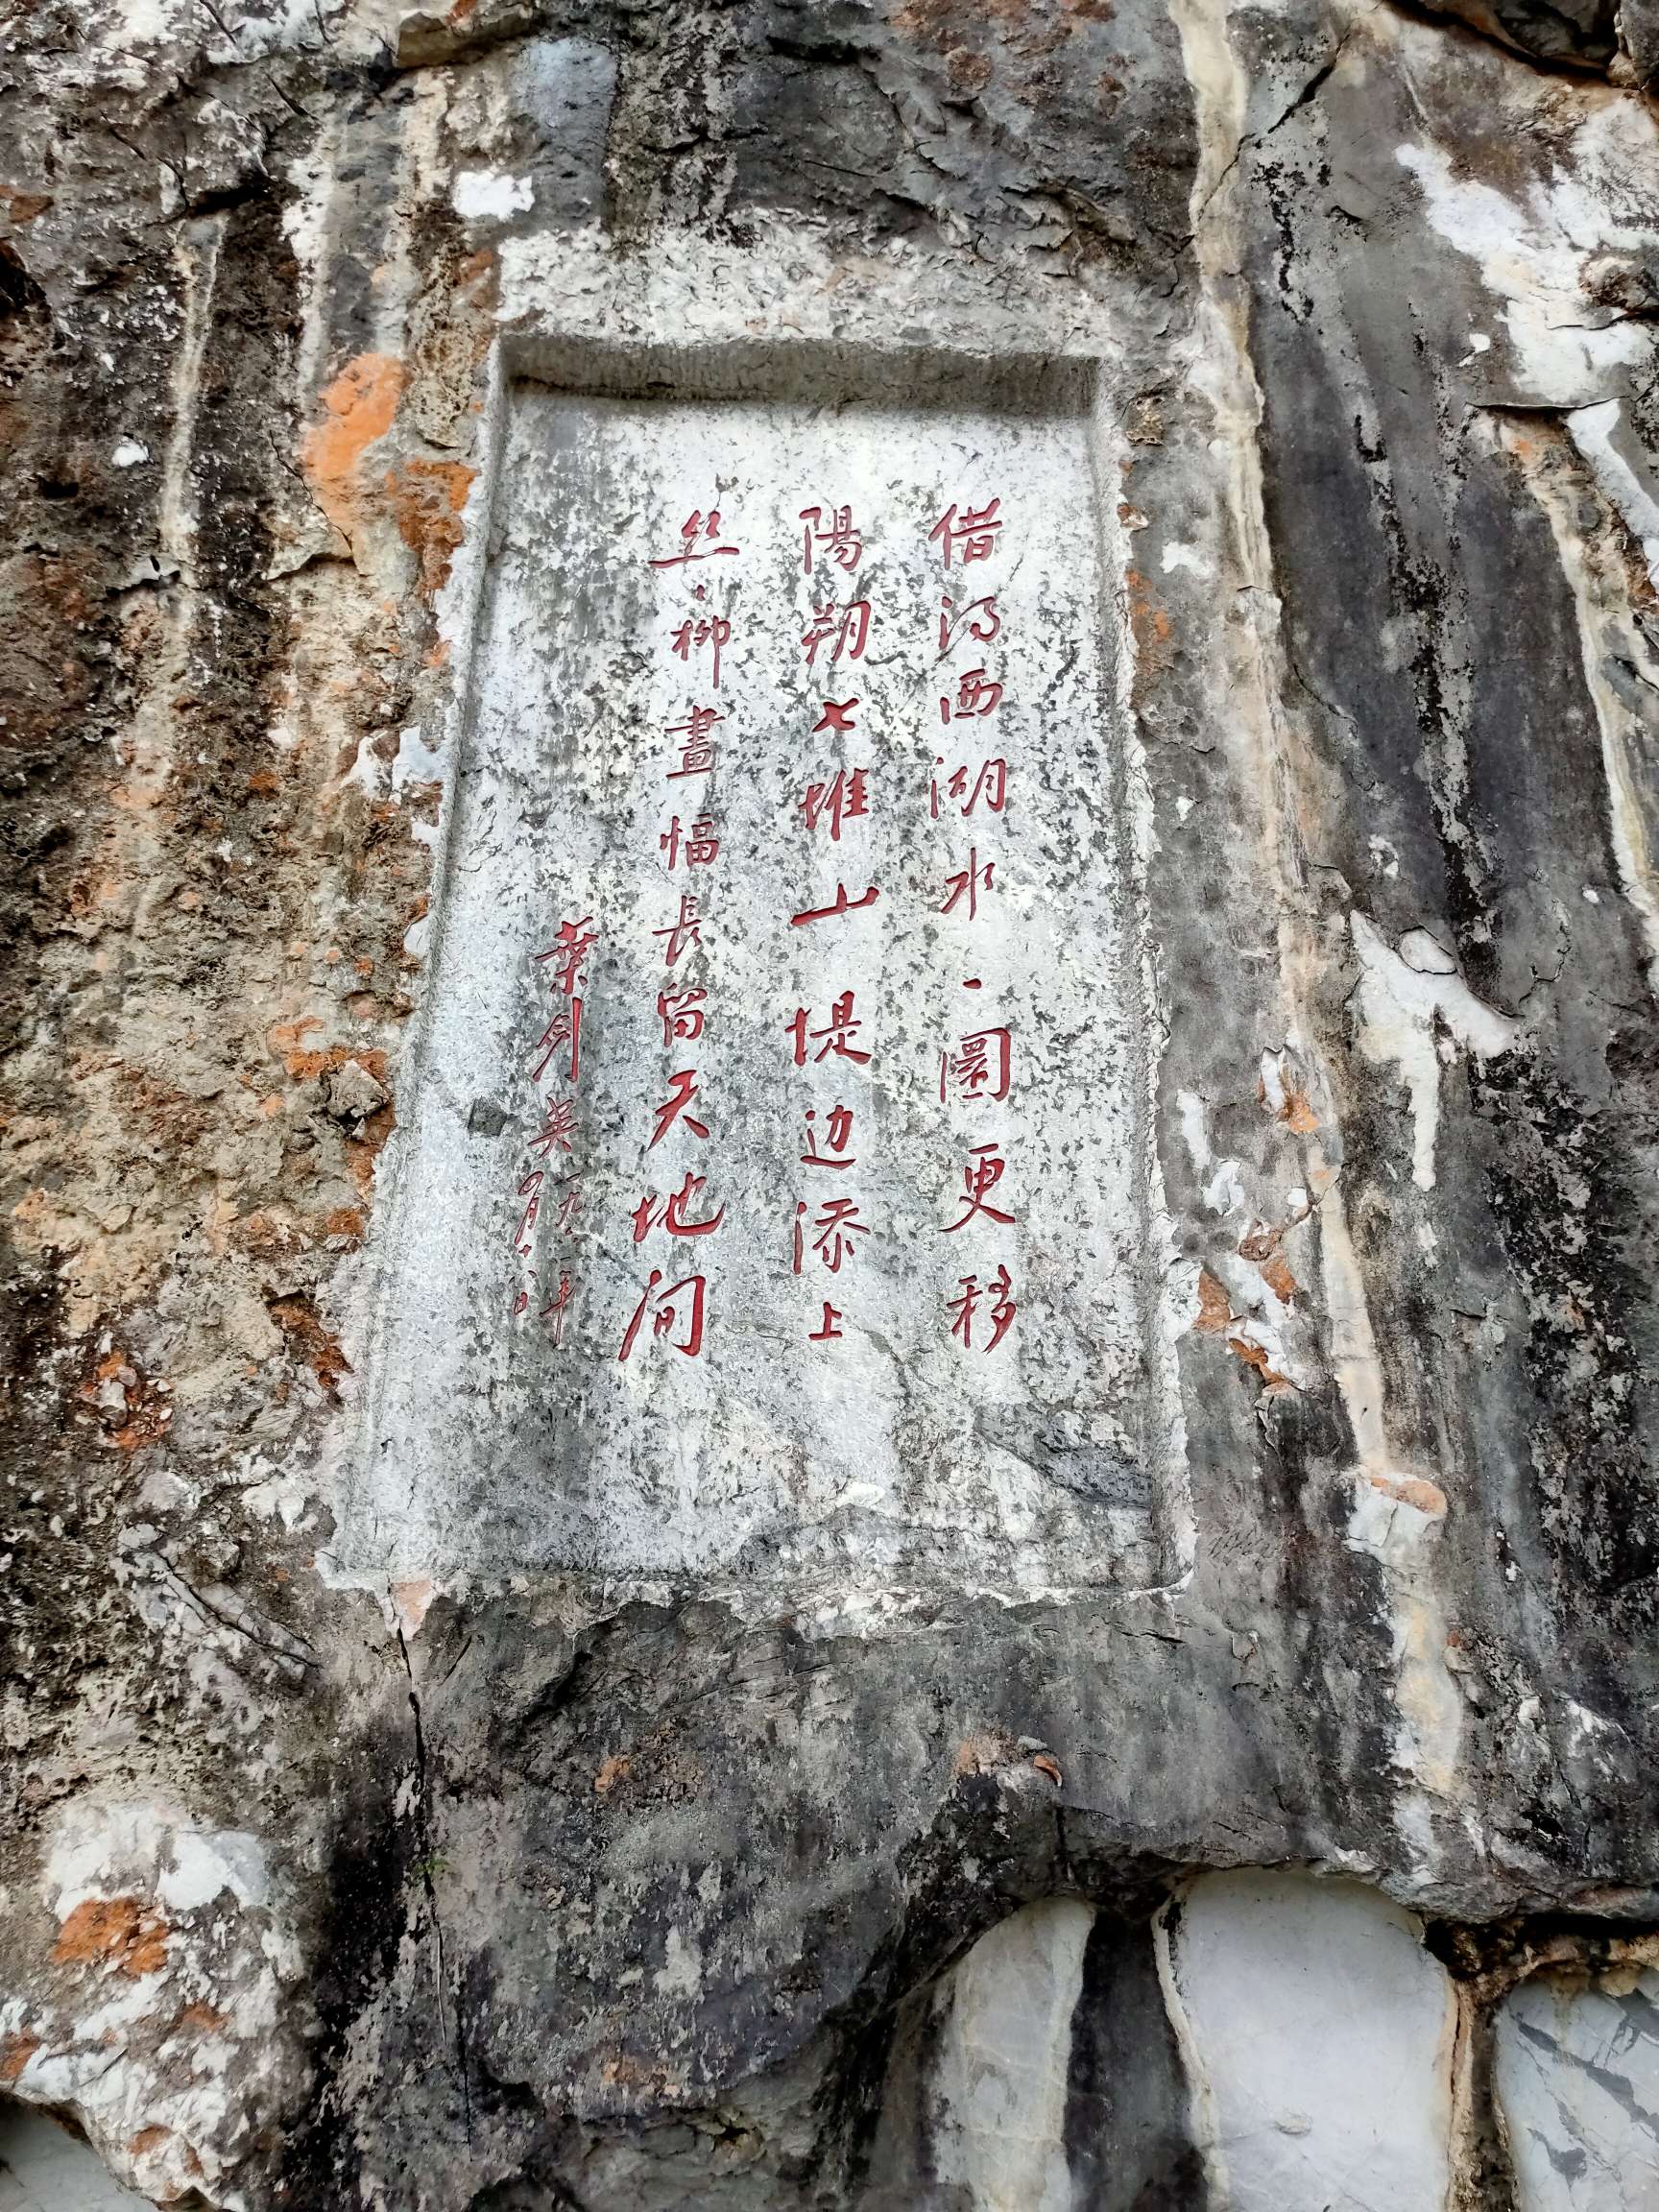 借得西湖水一圜更移
陽朔七堆山堤边添上
丝丶柳畫幅長留天地间
葉剑英